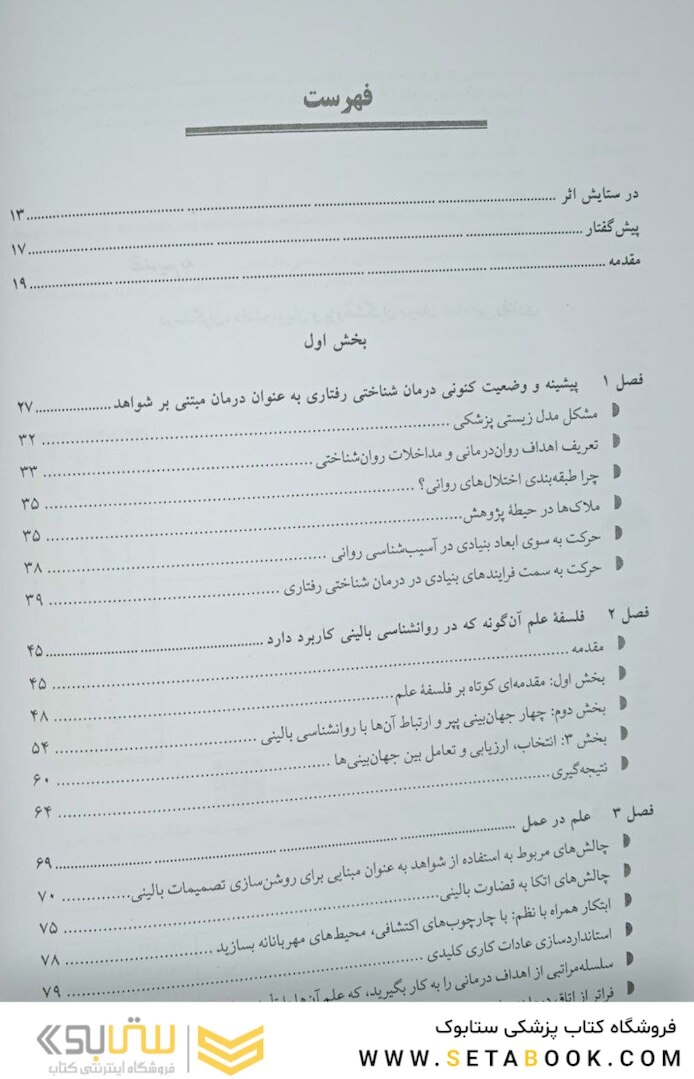 فهرست
در ستایش اثر ..... ۱۳
پیش‌گفتار ..... ۱۷
مقدمه ..... ۱۹
بخش اول
فصل ۱ پیشینه و وضعیت کنونی درمان شناختی رفتاری به عنوان درمان مبتنی بر شواهد ..... ۲۷
مشکل مدل زیستی پزشکی ..... ۳۲
تعریف اهداف روان‌درمانی و مداخلات روان‌شناختی ..... ۳۳
چرا طبقه‌بندی اختلال‌های روانی؟ ..... ۳۵
ملاک‌ها در حیطهٔ پژوهش ..... ۳۵
حرکت به سوی ابعاد بنیادی در آسیب‌شناسی روانی ..... ۳۸
حرکت به سمت فرایندهای بنیادی در درمان شناختی رفتاری ..... ۳۹
فصل ۲ فلسفهٔ علم آن‌گونه که در روانشناسی بالینی کاربرد دارد ..... ۴۵
مقدمه ..... ۴۵
بخش اول: مقدمه‌ای کوتاه بر فلسفهٔ علم ..... ۴۸
بخش دوم: چهار جهان‌بینی پپر و ارتباط آن‌ها با روانشناسی بالینی ..... ۵۴
بخش ۳: انتخاب، ارزیابی و تعامل بین جهان‌بینی‌ها ..... ۶۰
نتیجه‌گیری ..... ۶۴
فصل ۳ علم در عمل ..... ۶۹
چالش‌های مربوط به استفاده از شواهد به عنوان مبنایی برای روشن‌سازی تصمیمات بالینی ..... ۷۰
چالش‌های اتکا به قضاوت بالینی ..... ۷۵
ابتکار همراه با نظم: با چارچوب‌های اکتشافی، محیط‌های مهربانانه بسازید ..... ۷۸
استانداردسازی عادات کاری کلیدی ..... ۷۹
سلسله‌مراتبی از اهداف درمانی را به کار بگیرید، که علم آن‌ها را
فراتر از اتاق
فروشگاه کتاب پزشکی ستابوک
WWW.SETABOOK.COM
ستابوک
فروشگاه اینترنتی کتاب